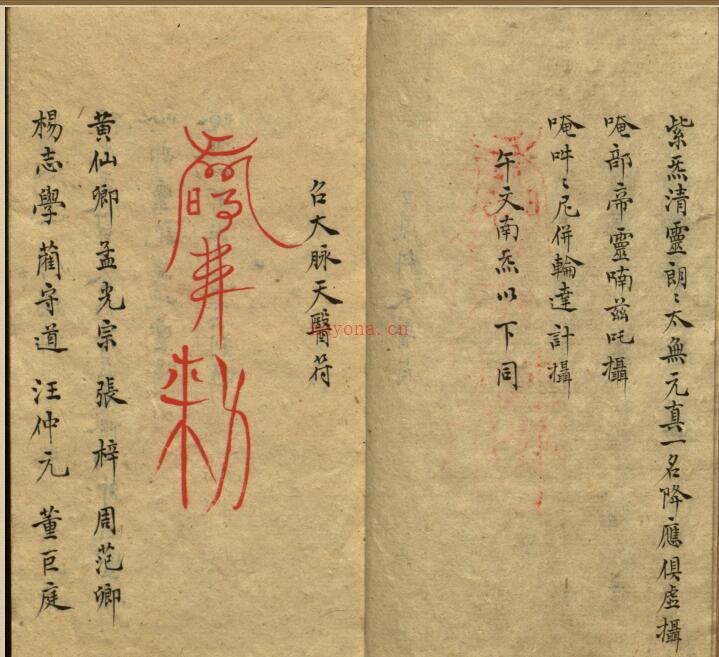 紫炁清靈朗〻太無元真一名降應俱虛攝
唵部帝靈喃茲吒攝
唵吽〻尼併輪達計攝
午文南炁以下同
召大脉天醫符
黄仙卿 孟光宗 張梓 周范卿
楊志學 藺守道 汪仲元 董巨庭
ayona.cn